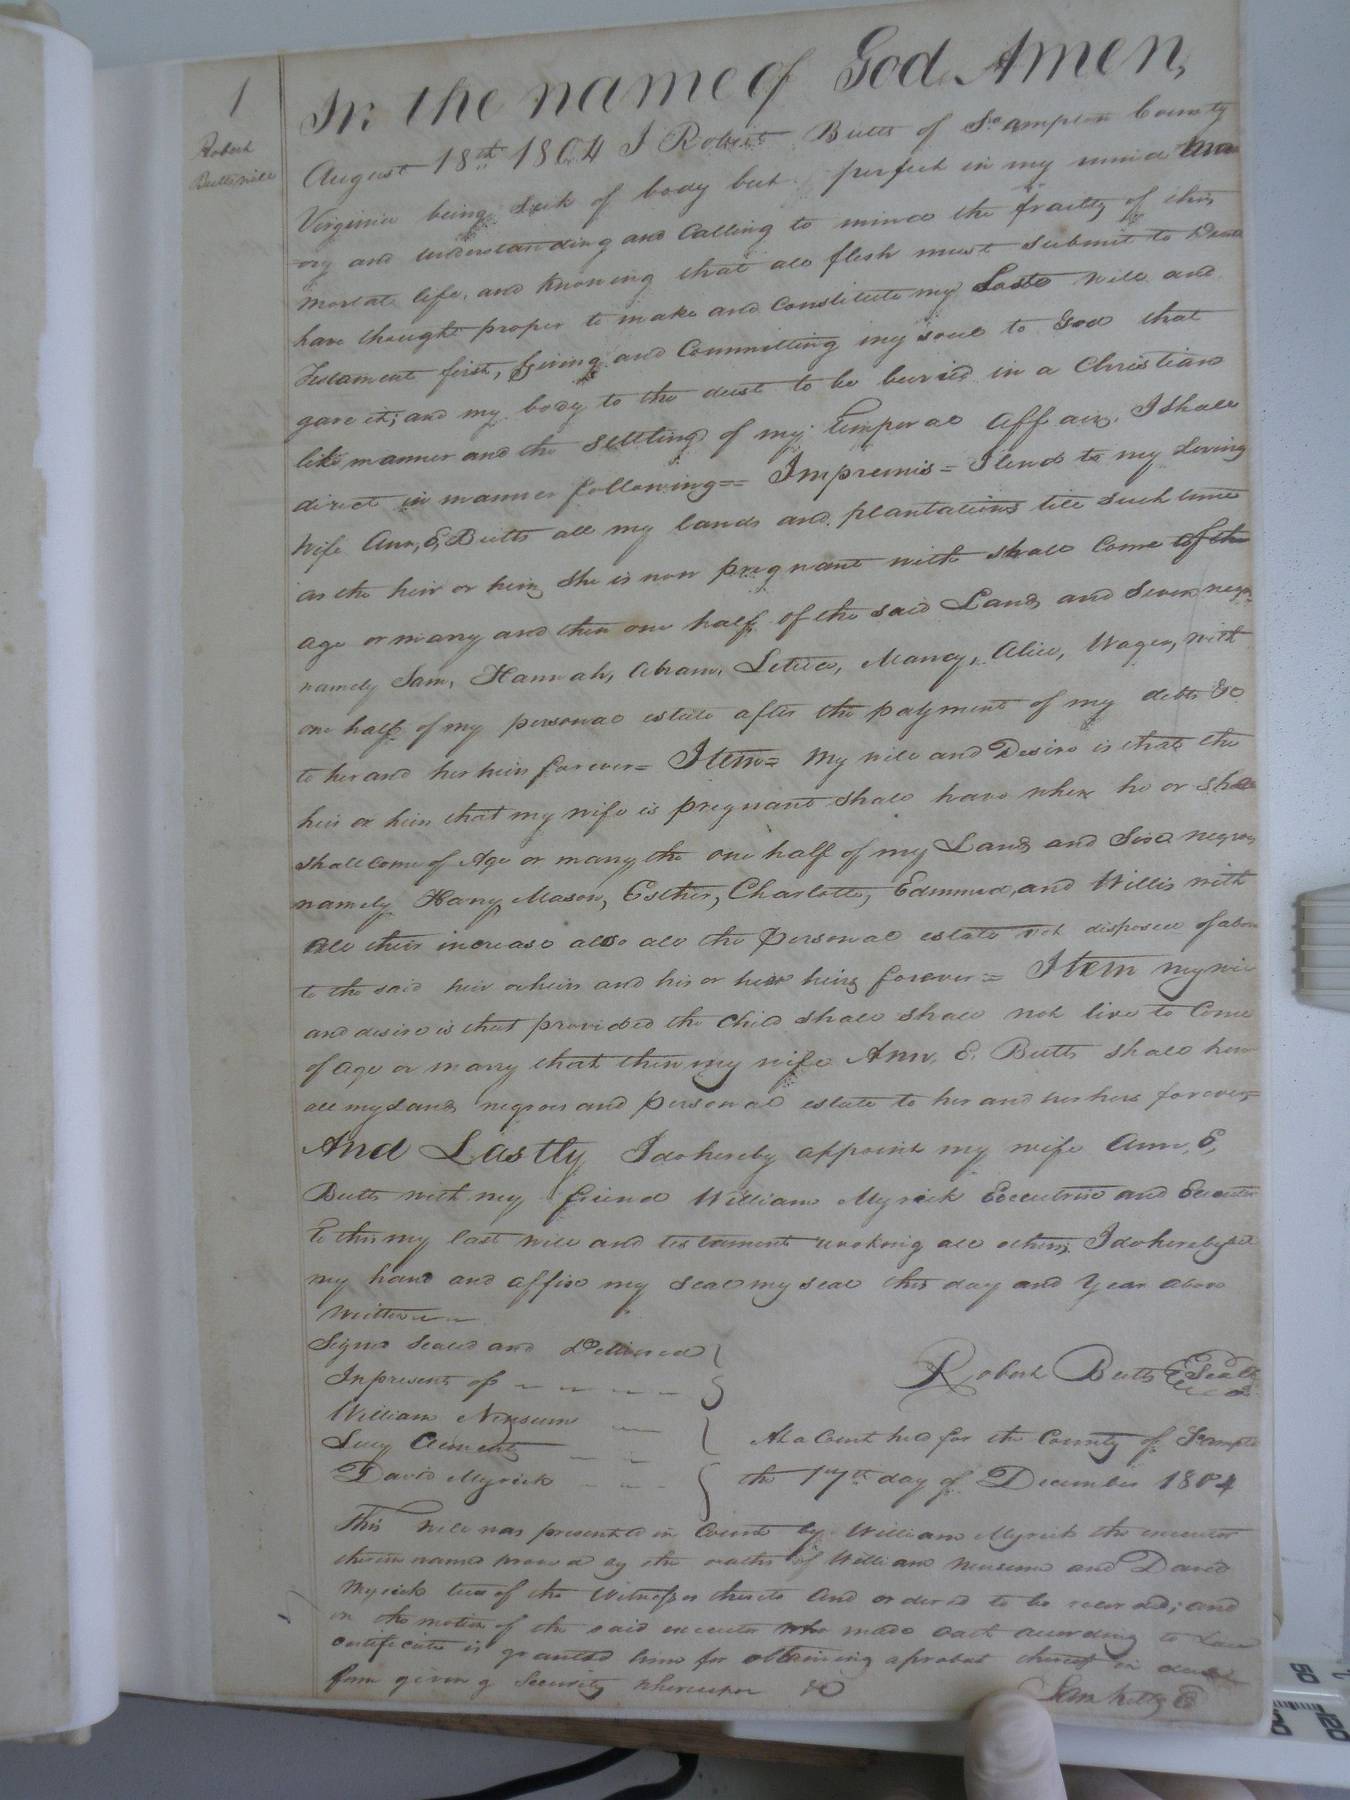 1
Robert
Butts Will
In the name of God Amen,
August 18th 1804 I Robert Butts of So.ampton County
Virginia being Sick of body but perfect in my mind mem
-ory and understanding and Calling to mind the frailty of this
mortal life, and knowing that all flesh must submit to Death
have thought proper to make and Constitute my Last will and
Testament first, Giving and Committing my soul to God that
gave it; and my body to the dust to be buried in a Christian
like manner and the settling of my Temporal affairs, I shall
direct in manner following== Impremis = I lend to my Loving
Wife Ann, E, Butts all my lands and plantations till such time
as the heir or heirs she is now pregnant with shall Come of the
age or marry and then one half of the said Land, and Seven negroes
namely Sam, Hannah, Abram, Letitia, Nancy, Alice, Wager, with
one half of my personal estate after the payment of my debts &c
to her and her heirs forever= Item= My will and Desire is that the
heir or heirs that my wife is pregnant shall have when he or she
shall come of Age or marry the one half of my Land and Six negroes
namely Harry, Mason, Esther, Charlotte, Edmund, and Willis with
all their increase also all the personal estate not disposed of above
to the said heir or heirs and his or her heirs forever= Item my will
and desire is that provided the child shall shall not live to Come
of age or marry that then my wife Ann, E. Butts shall have
all my Land, negroes and personal estate to her and her heirs forever=
And Lastly I do hereby appoint my wife Ann, E,
Butts with my friend William Myrick Executrix and Executor
to this my last will and testament revoking all others, I do hereby set
my hand and affix my seal my seal this day and Year above
Written
Signed Sealed and Delivered
In presents of
Robert Butts Seal
William Newsum
Lucy Clements
At a Court held for the County of So.ampto
David Myrick
the 17th day of December 1804
This will was presented in Court by William Myrick the executor
therein named proved by the oaths of William Newsum and David
Myrick two of the Witnesses thereto and ordered to be recorded; and
on the motion of the said executor who made oath according to Law
certificate is granted him for obtaining a probat thereof in due
form giving Security whereupon &c
Sam Kello C